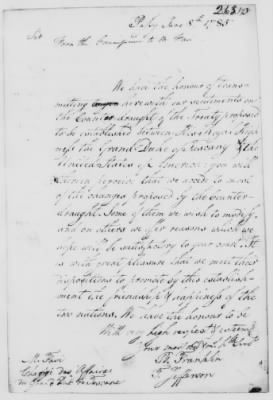 Paris June 8th 1785
Sir
From the Commissioners to M. Favi
We have the honour of trans-
mitting herewith our sentiments on
the Counter draught of the Treaty proposed
to be established between His Royal High-
ness the Grand Duke of Tuscany & the
United States of America: you will
therein perceive that we accede to most
of the changes proposed by the Counter-
draught. Some of them we wish to modify,
and on others we offer reasons which we
hope will be satisfactory to your court. It
is with great pleasure that we meet their
dispositions to promote by this establish-
ment the friendship & happiness of the
two nations. We have the honour to be
with very high respect & esteem
Your most
B. Franklin
T. Jefferson
M. Favi
Chargé des Affaires